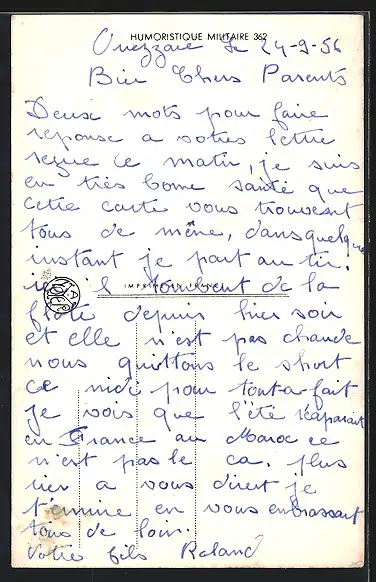 HUMORISTIQUE MILITAIRE 362
Ouezzane le 24-9-56
Bien Chers Parents
Deux mots pour faire
reponse a votre lettre
reçue ce matin, je suis
en très bonne santé que
cette carte vous trouvent
tous de même, dans quelque
instant je part au tir.
il tombent de la
IMPRIMÉ EN FRANCE
flote depuis hier soir
et elle n'est pas chaude
nous quittons le short
ce midi pour tout-a-fait
je vois que l'été réaparait
en France au Maroc ce
n'est pas le ca. plus
rien a vous diret je
termine en vous embrassant
tous de loin.
Votre fils Roland